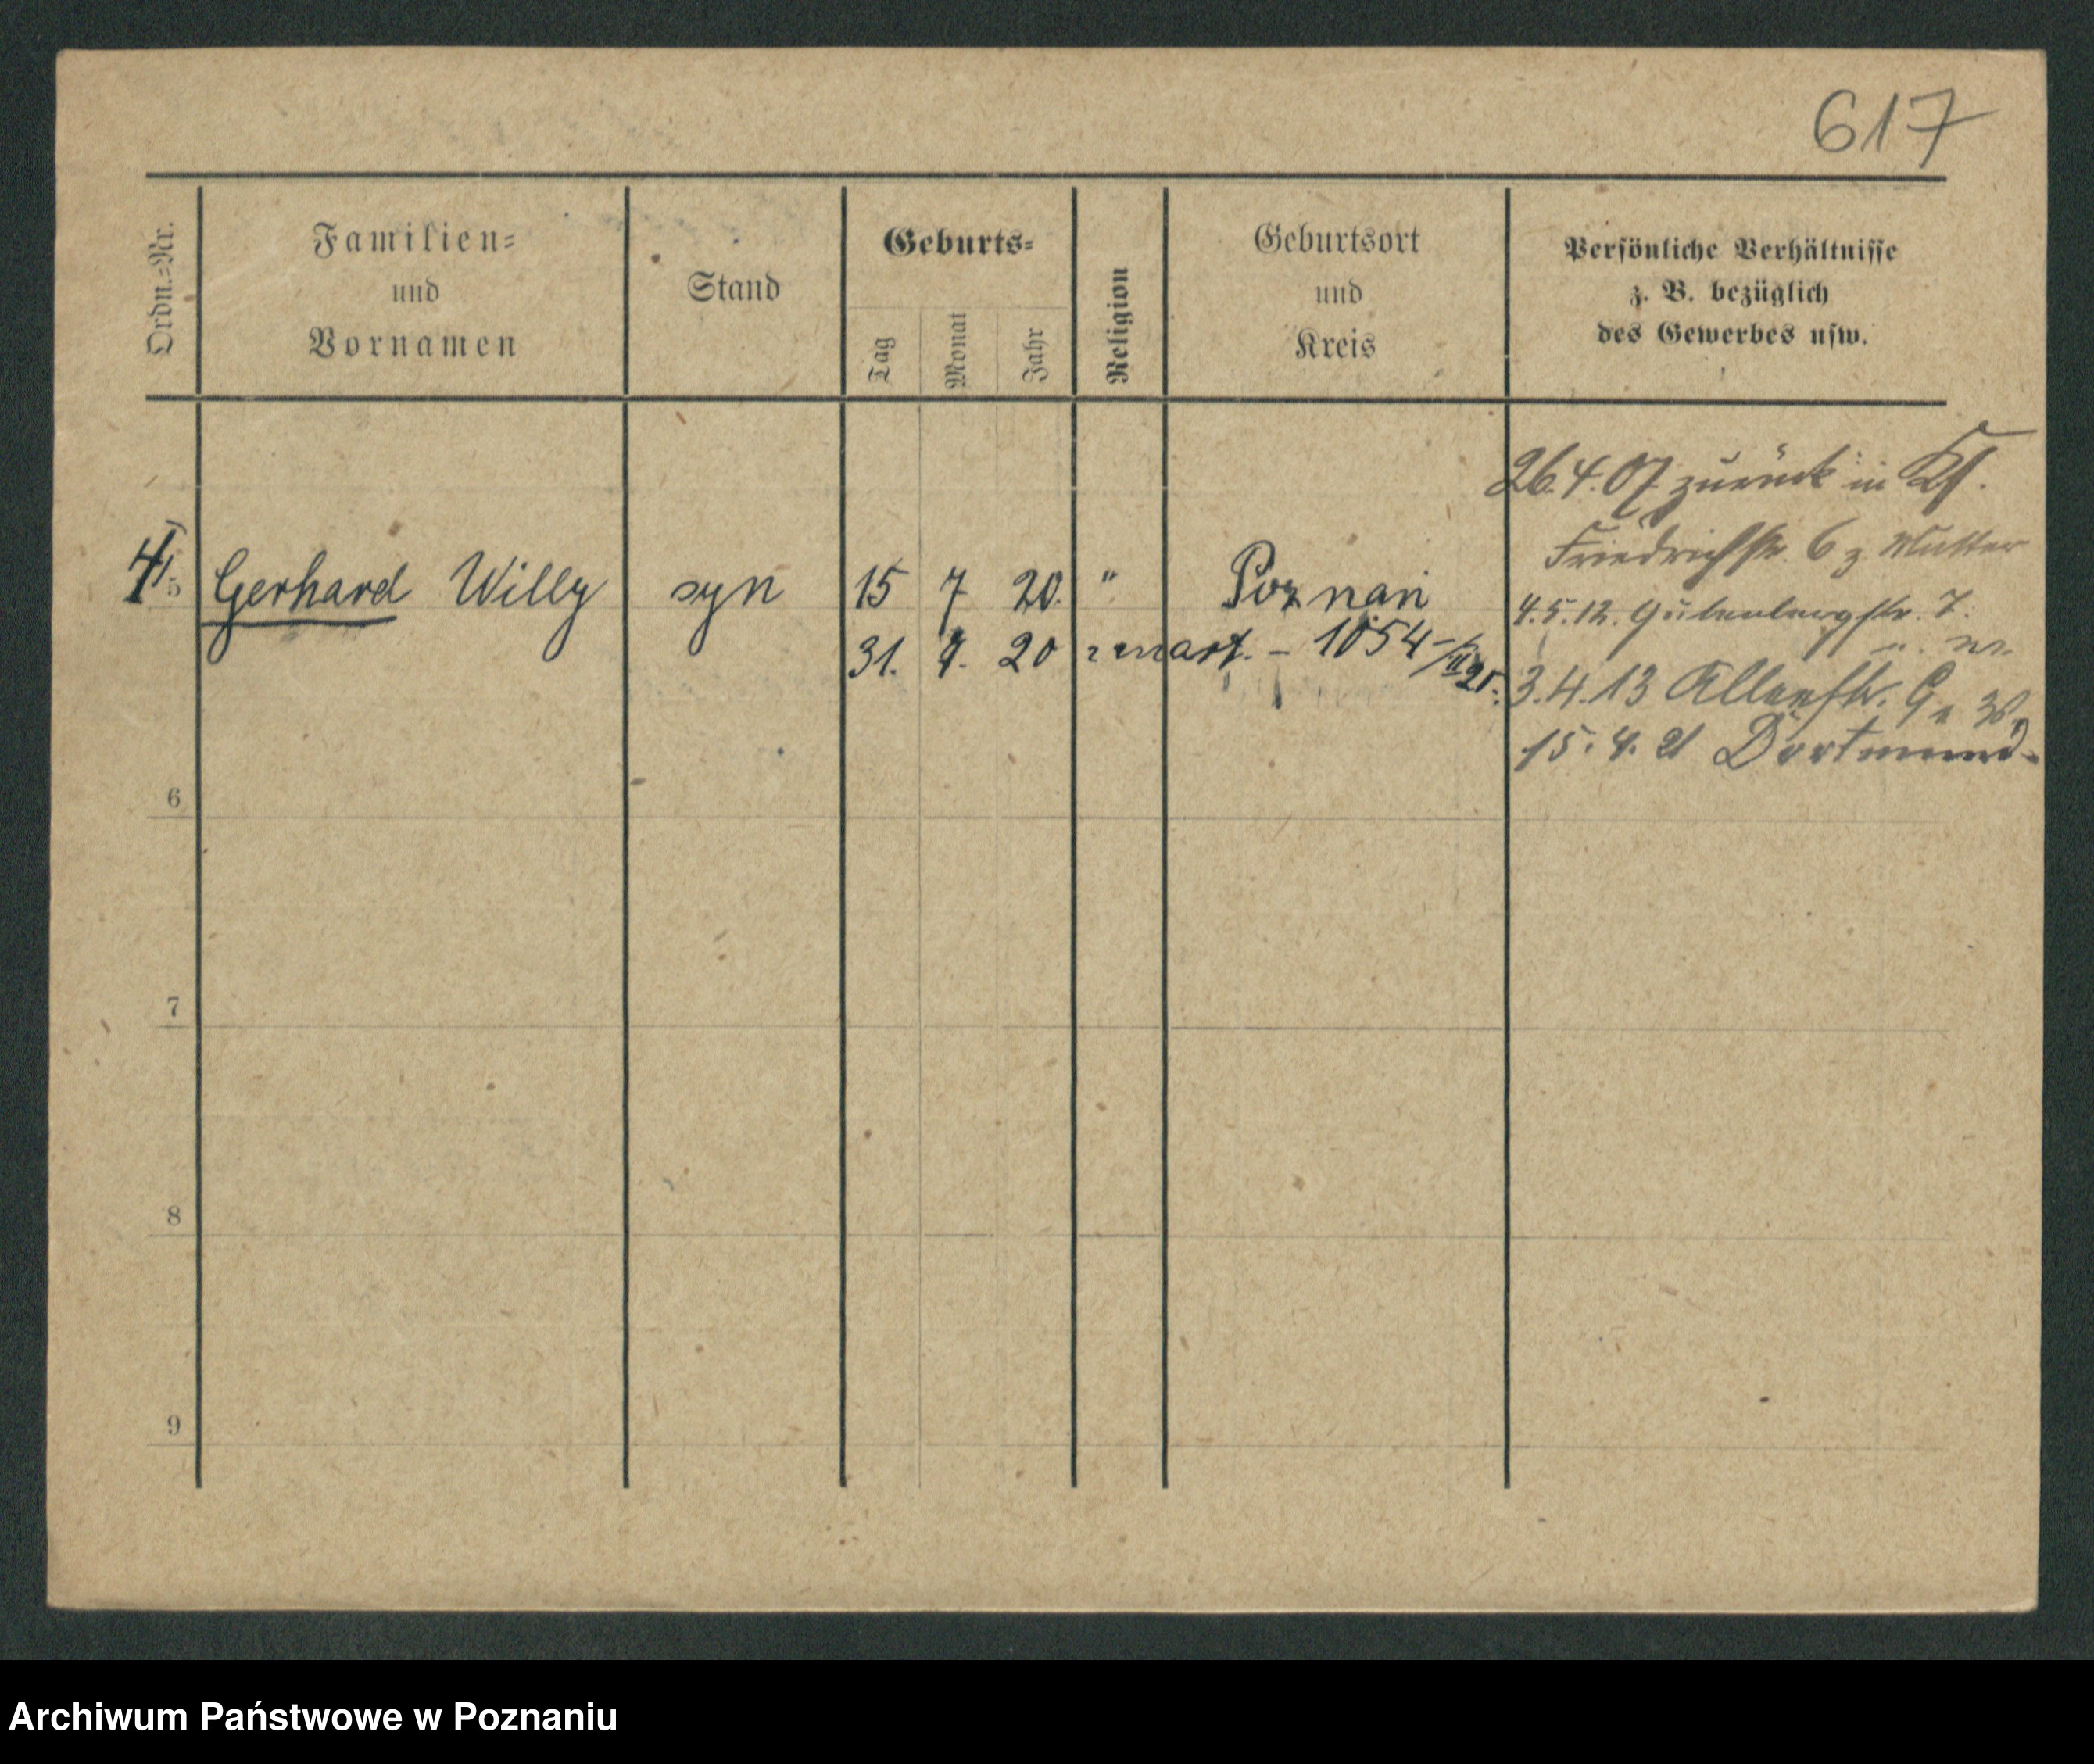 617
Ordn.=Nr.
Familien=
und
Vornamen
Stand
Geburts=
Tag
Monat
Jahr
Religion
Geburtsort
und
Kreis
Persönliche Verhältnisse
z. B. bezüglich
des Gewerbes usw.
26.4.07 zurück in
Friedrichstr. 6 z Mutter
4 5 Gerhard Willy syn 15 7 20. " Poznań
4.5.12. Gutenbergstr. 7.
31. 7. 20 zmart. – 1054
3.4.13
15.4.21 Dortmund
6
7
8
9
Archiwum Państwowe w Poznaniu